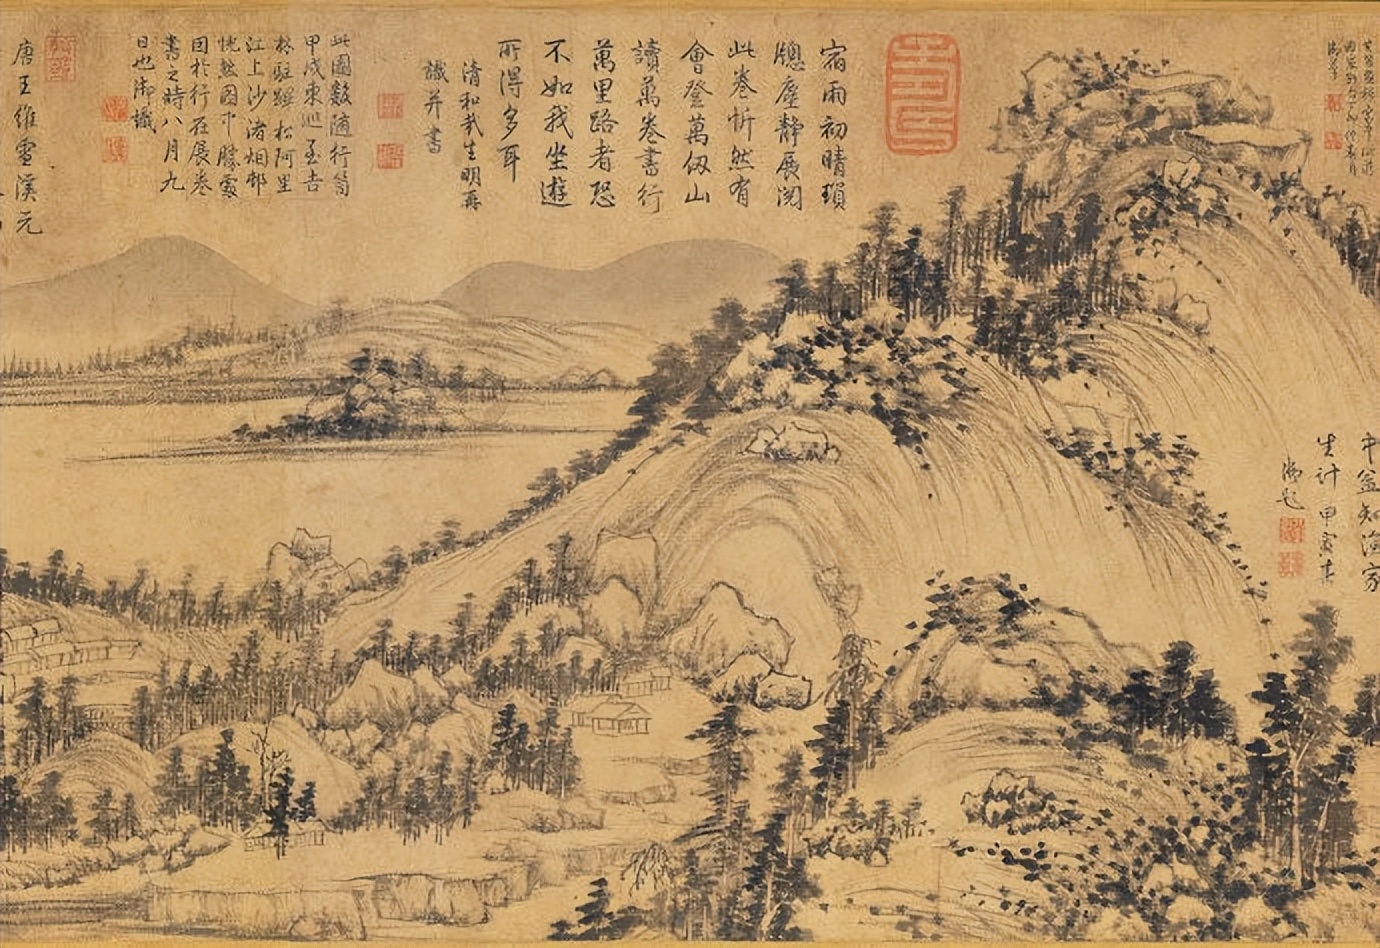 中益知漁家
生計 甲寅春
御題
宿雨初晴瑣
牕塵靜展閱
此卷忻然有
會登萬仭山
讀萬卷書行
萬里路者恐
不如我坐遊
所得多耳
清和哉生明再
識并書
此圖數隨行笥
甲戌東巡至吉
林駐蹕松阿里
江上沙渚烟邨
恍然圖中勝處
因於行在展卷
書之時八月九
日也御識
唐王維雪溪元